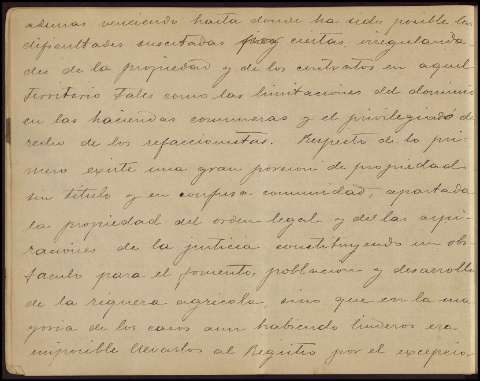 ademas venciendo hasta donde ha sido posible las
dificultades suscitadas ciertas irregularida
des de la propiedad y de los contratos en aquel
Territorio tales como las limitaciones del dominio
en las haciendas comuneras y el privilegiado de
recho de los refaccionistas. Respecto de lo pri-
mero existe una gran porcion de propiedad
sin titulo y en confusa comunidad, apartada
la propiedad del orden legal y de las aspi-
raciones de la justicia constituyendo un obs-
taculo para el fomento, poblacion y desarrollo
de la riqueza agricola, sino que en la ma
yoria de los casos aun habiendo linderos era
imposible llevarlos al Registro por el excepcio